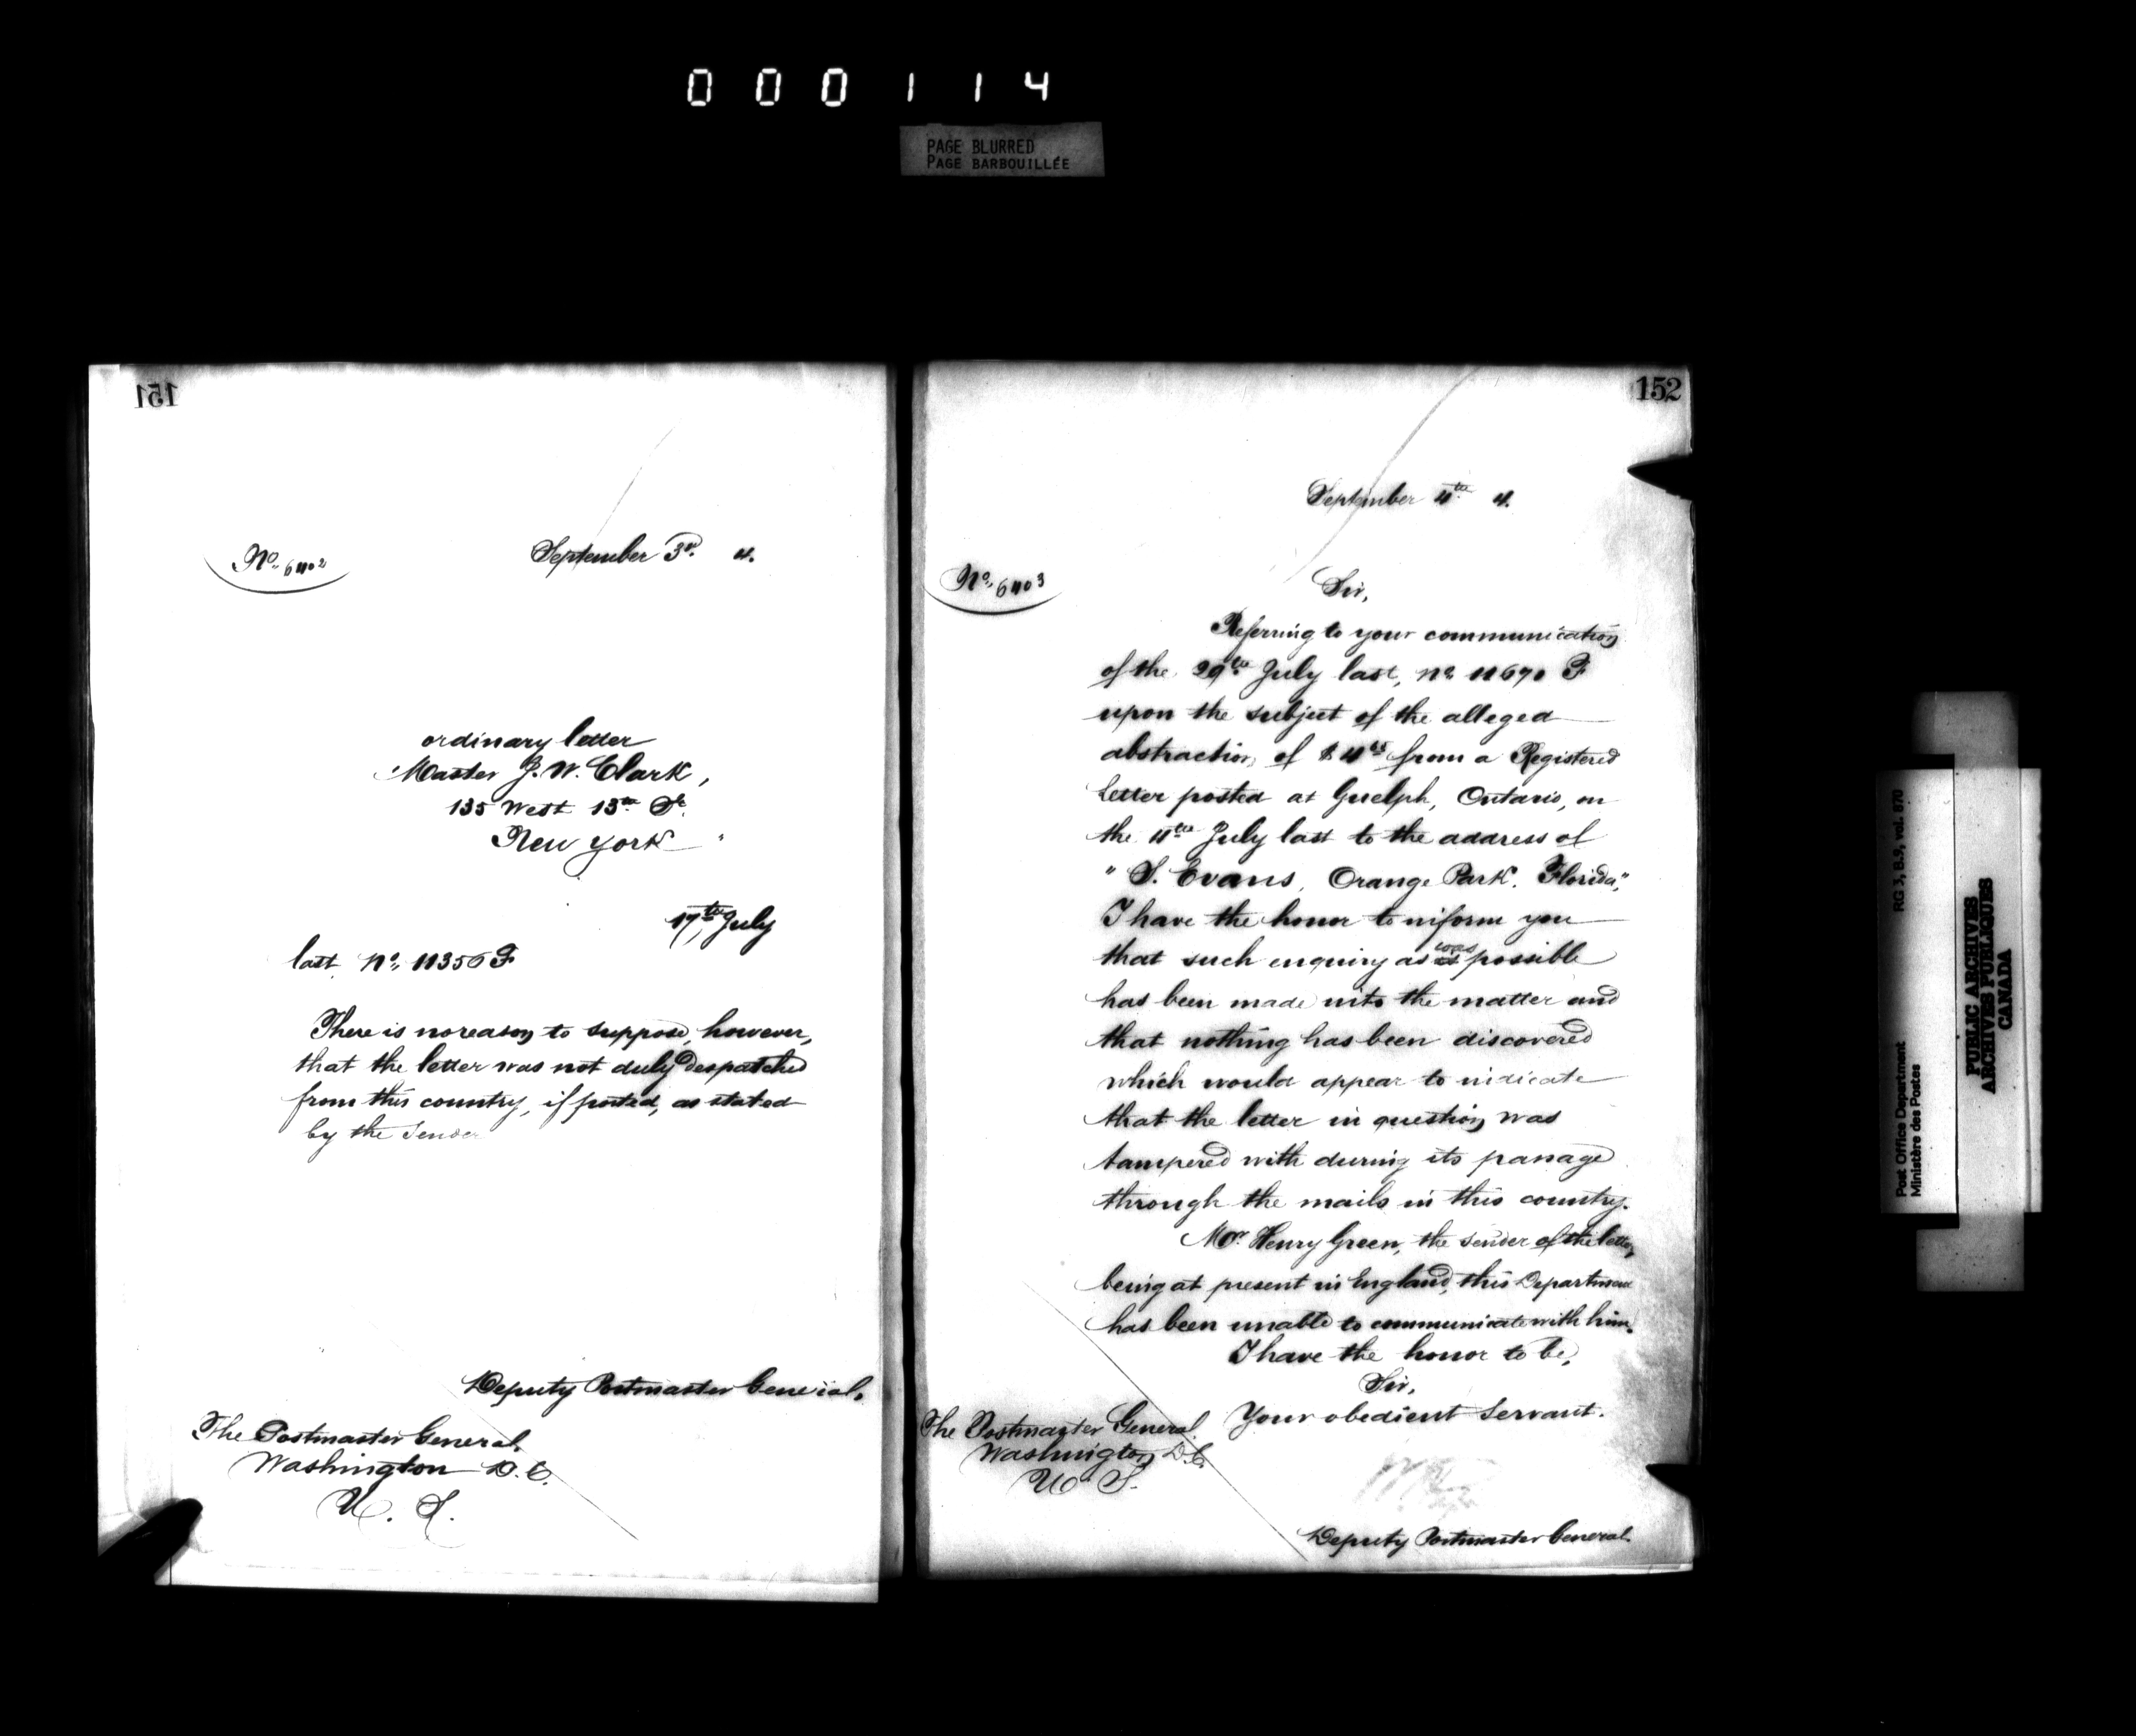 000114
PAGE BLURRED
PAGE BARBOUILLÉE
151
No. 6402
September 3rd. 4.
ordinary letter
Master J. W. Clark,
135 West 13th St.
New York "
17th July
last No. 11356 F
There is no reason to suppose, however,
that the letter was not duly despatched
from this country, if posted, as stated
by the sender
Deputy Postmaster General.
The Postmaster General,
Washington D.C.
U. S.
152
September 4th 4.
No. 6403
Sir,
Referring to your communication
of the 29th July last, No. 11670 F
upon the subject of the alleged
abstraction of from a Registered
Letter posted at Guelph, Ontario, on
the July last to the address of
" S. Evans, Orange Park, Florida,"
I have the honor to inform you
that such enquiry as was possible
has been made into the matter and
that nothing has been discovered
which would appear to indicate
that the letter in question was
tampered with during its passage
through the mails in this country.
Mr. Henry Green, the sender of the letter,
being at present in England, this Department
has been unable to communicate with him.
I have the honor to be,
Sir,
Your obedient servant.
The Postmaster General.
Washington D.C.
U. S.
Deputy Postmaster General.
Post Office Department RG 3, B.9, vol. 870
Ministère des Postes
PUBLIC ARCHIVES
ARCHIVES PUBLIQUES
CANADA